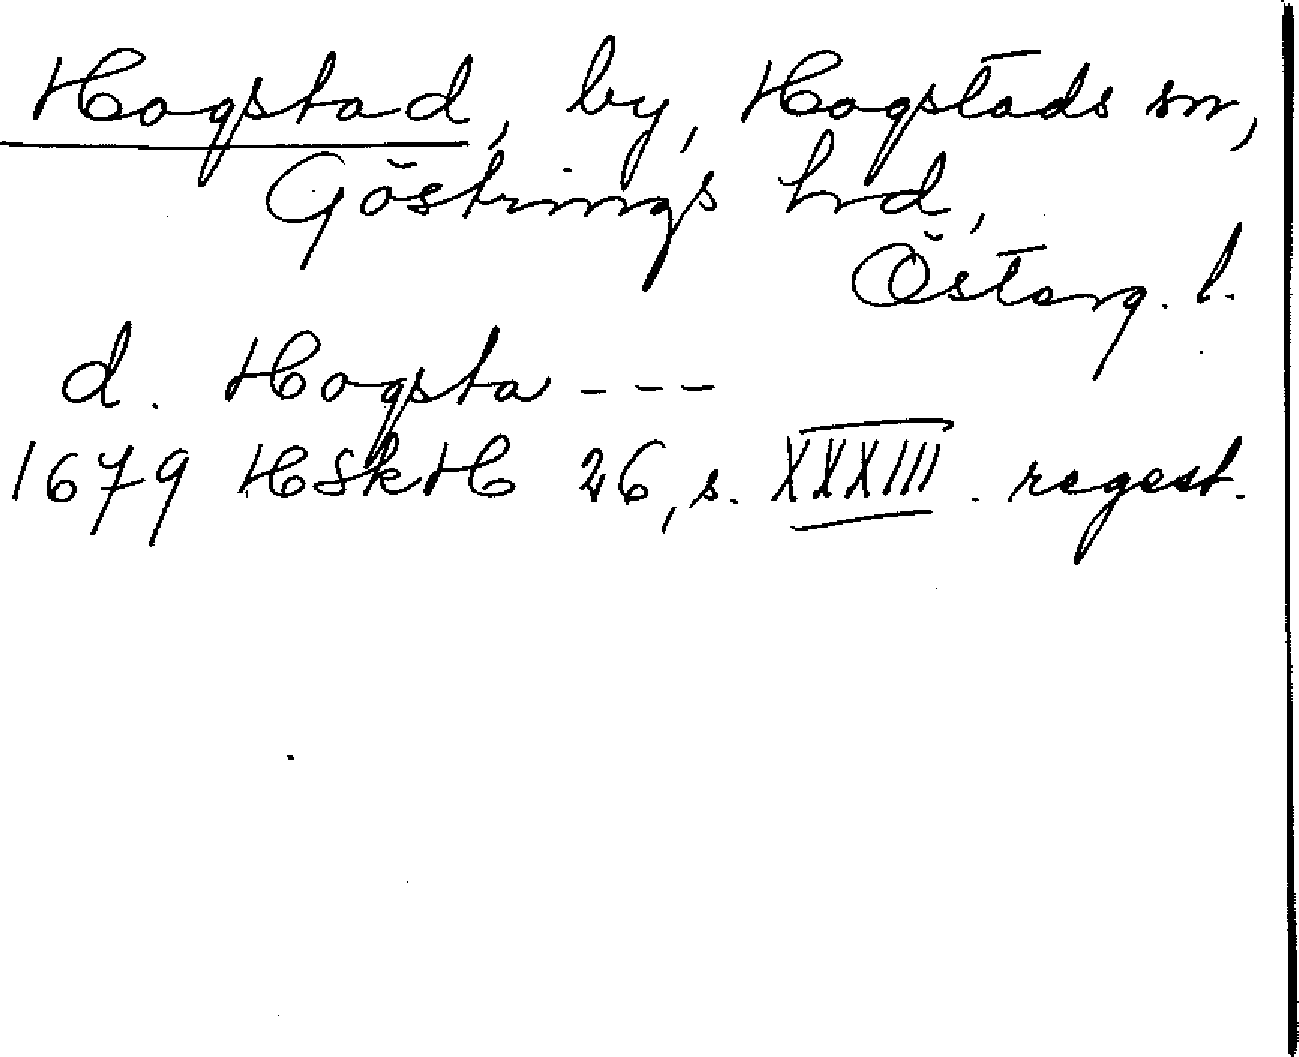 Hogstad, by, Hogstads sn,
Göstrings hrd,
Österg. l.
d. Hogsta ---
1679 HSkH 26, s. XXXIII. regest.